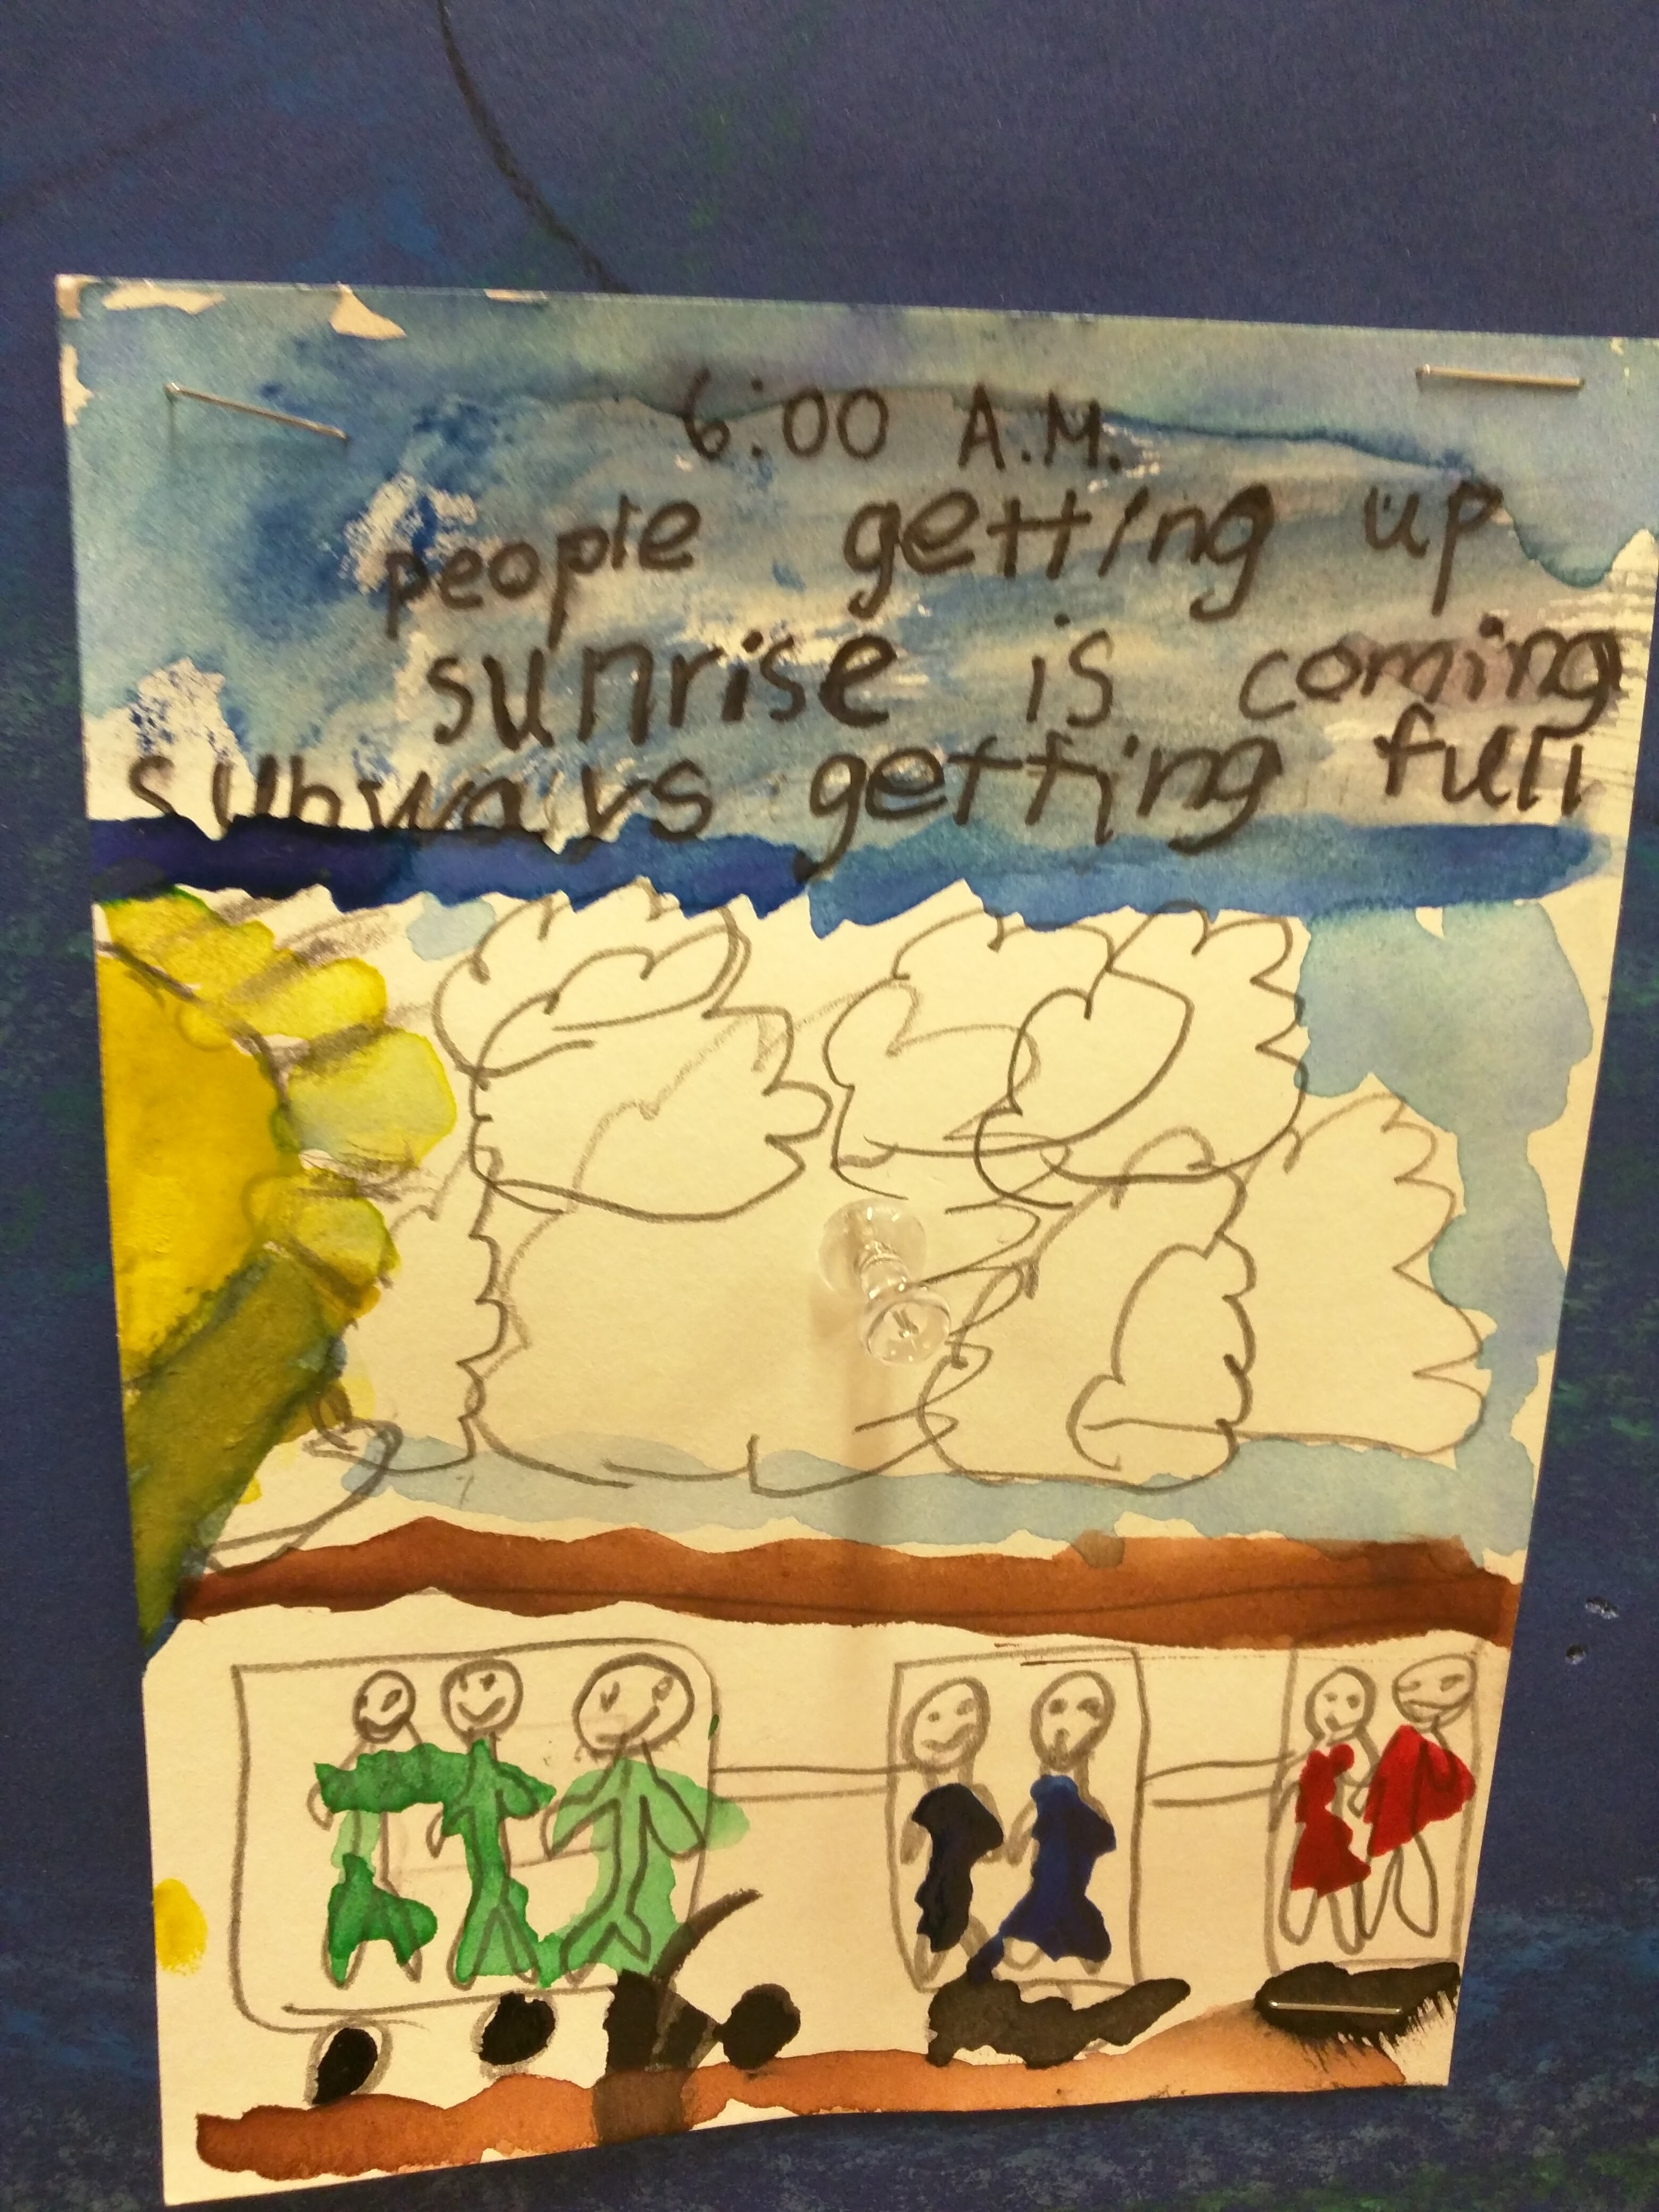 6:00 A.M.
people getting up
sunrise is coming
subways getting full